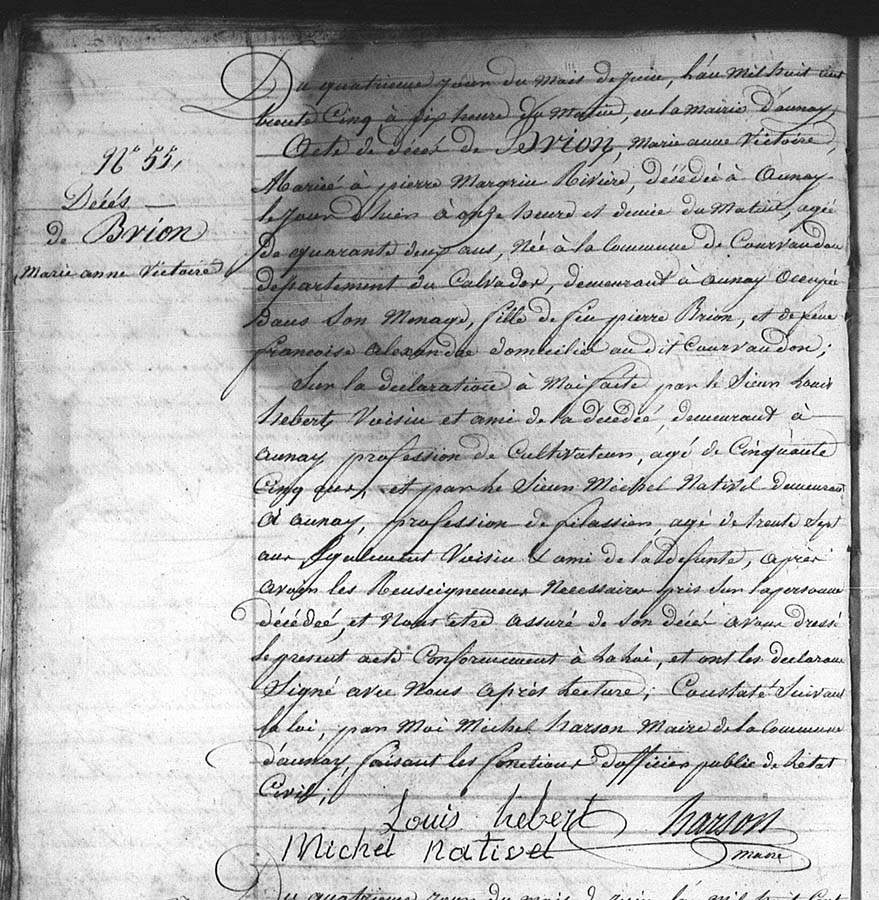 N° 55,
Décés
de Brion
Marie anne Victoire
Du quatrieme jour du mois de juin, l'an mil huit cent
trente Cinq à Six heure du Matin, en la mairie d'aunay
Acte de décés de Brion, Marie anne Victoire,
Mariéé à pierre Margrin Riviere, décédéé à Aunay
le jour d'hier à onze heure et demie du Matin, agéé
de quarante deux ans, Née à la Commune de Courvaudon
departement du Calvados, demeurant à aunay Occupéé
dans Son Menage, fille de feu pierre Brion, et de feue
francoise alexandre domicilié au dit Courvaudon;
Sur la declaration à Moi faite par le Sieur Louis
hebert, Voisin et ami de la décédéé, demeurant à
aunay profession de Cultivateur, agé de Cinquante
Cinq ans, et par le Sieur Michel Nativel demeurant
à aunay, profession de filassier, agé de trente Sept
ans Egalement Voisin & ami de la defunte, après
avoir les Renseignemens Necessaires pris Sur la personne
décédéé, et Nous etre assuré de Son décés avons dressé
le present acte Conformement à la loi, et ont les declarans
Signé avec Nous après lecture; Constaté Suivant
la loi, par Moi Michel harson Maire de la Commune
d'aunay, faisant les fonctions d'officier public de l'état
Civil;
Louis hebert harson
Michel nativel maire
Du quatrieme jour du mois de juin, l'an mil huit Cent